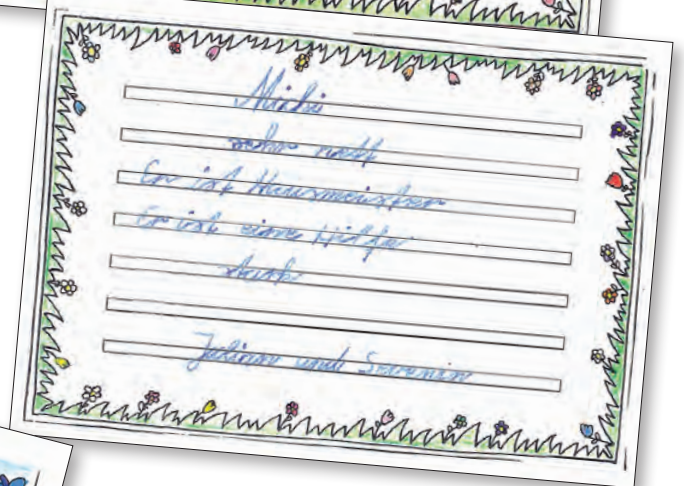 Michi
sehr nett
Er ist Hausmeister
Er ist eine Hilfe
stark
Julian und Severin